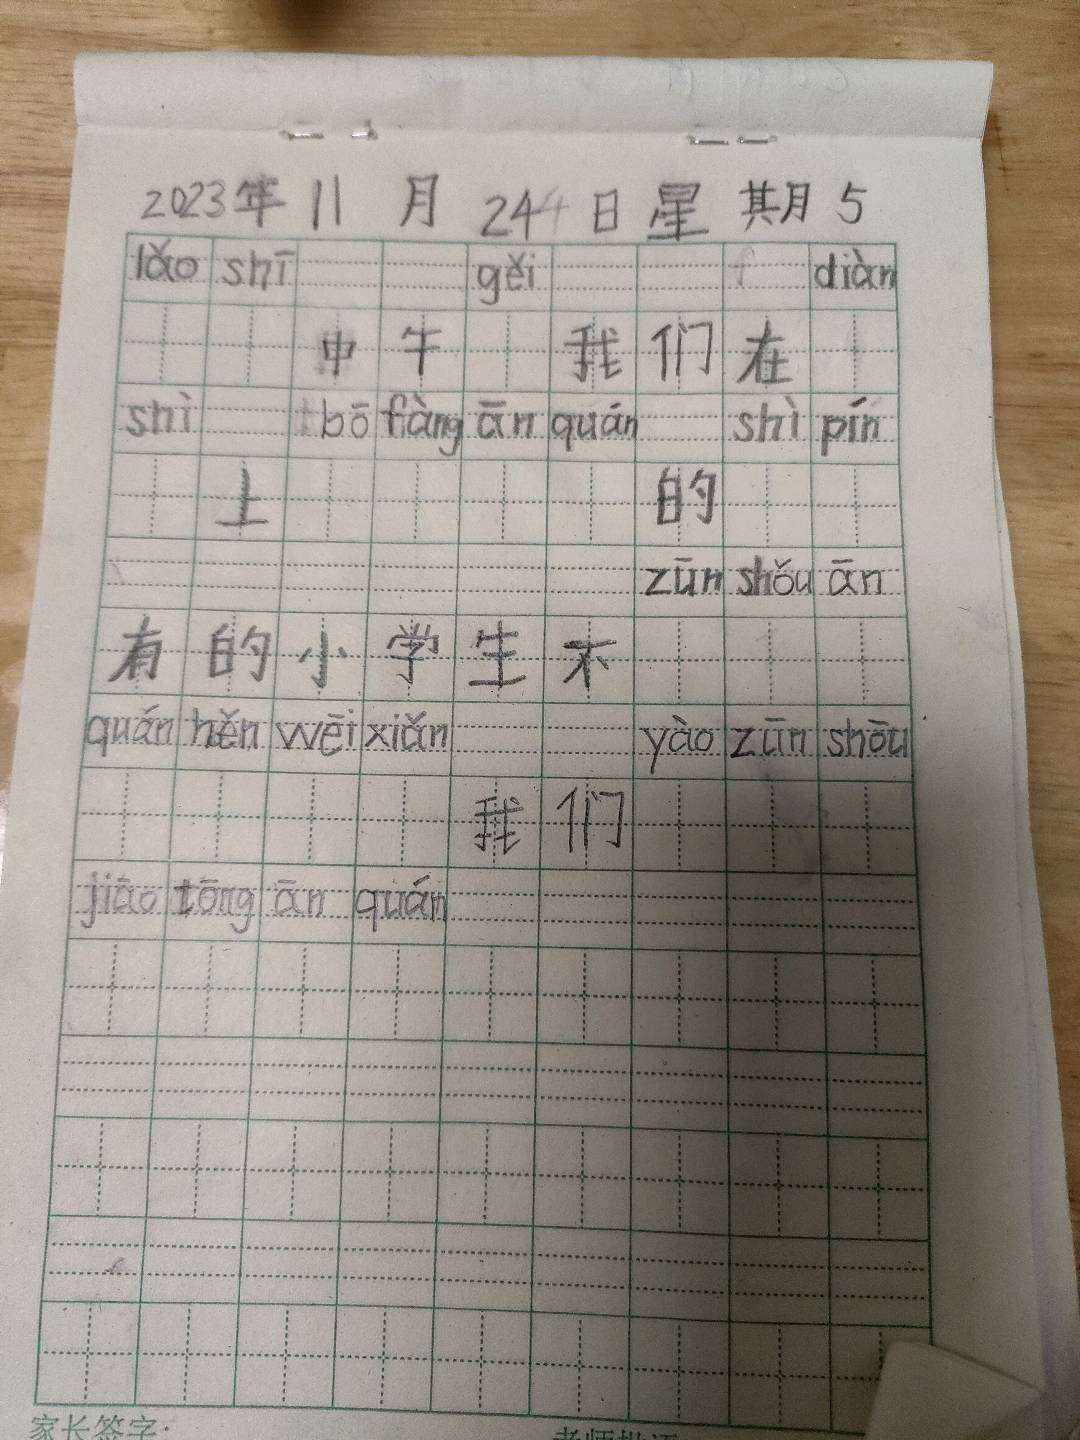 2023年11月244日星期5
lǎo shī gěi diàn
中午我们在
shì bō fàng ān quán shì pín
上的
zūn shǒu ān
有的小学生不
quán hěn wēi xiǎn yào zūn shōu
我们
jiāo tōng ān quán
家长签字: